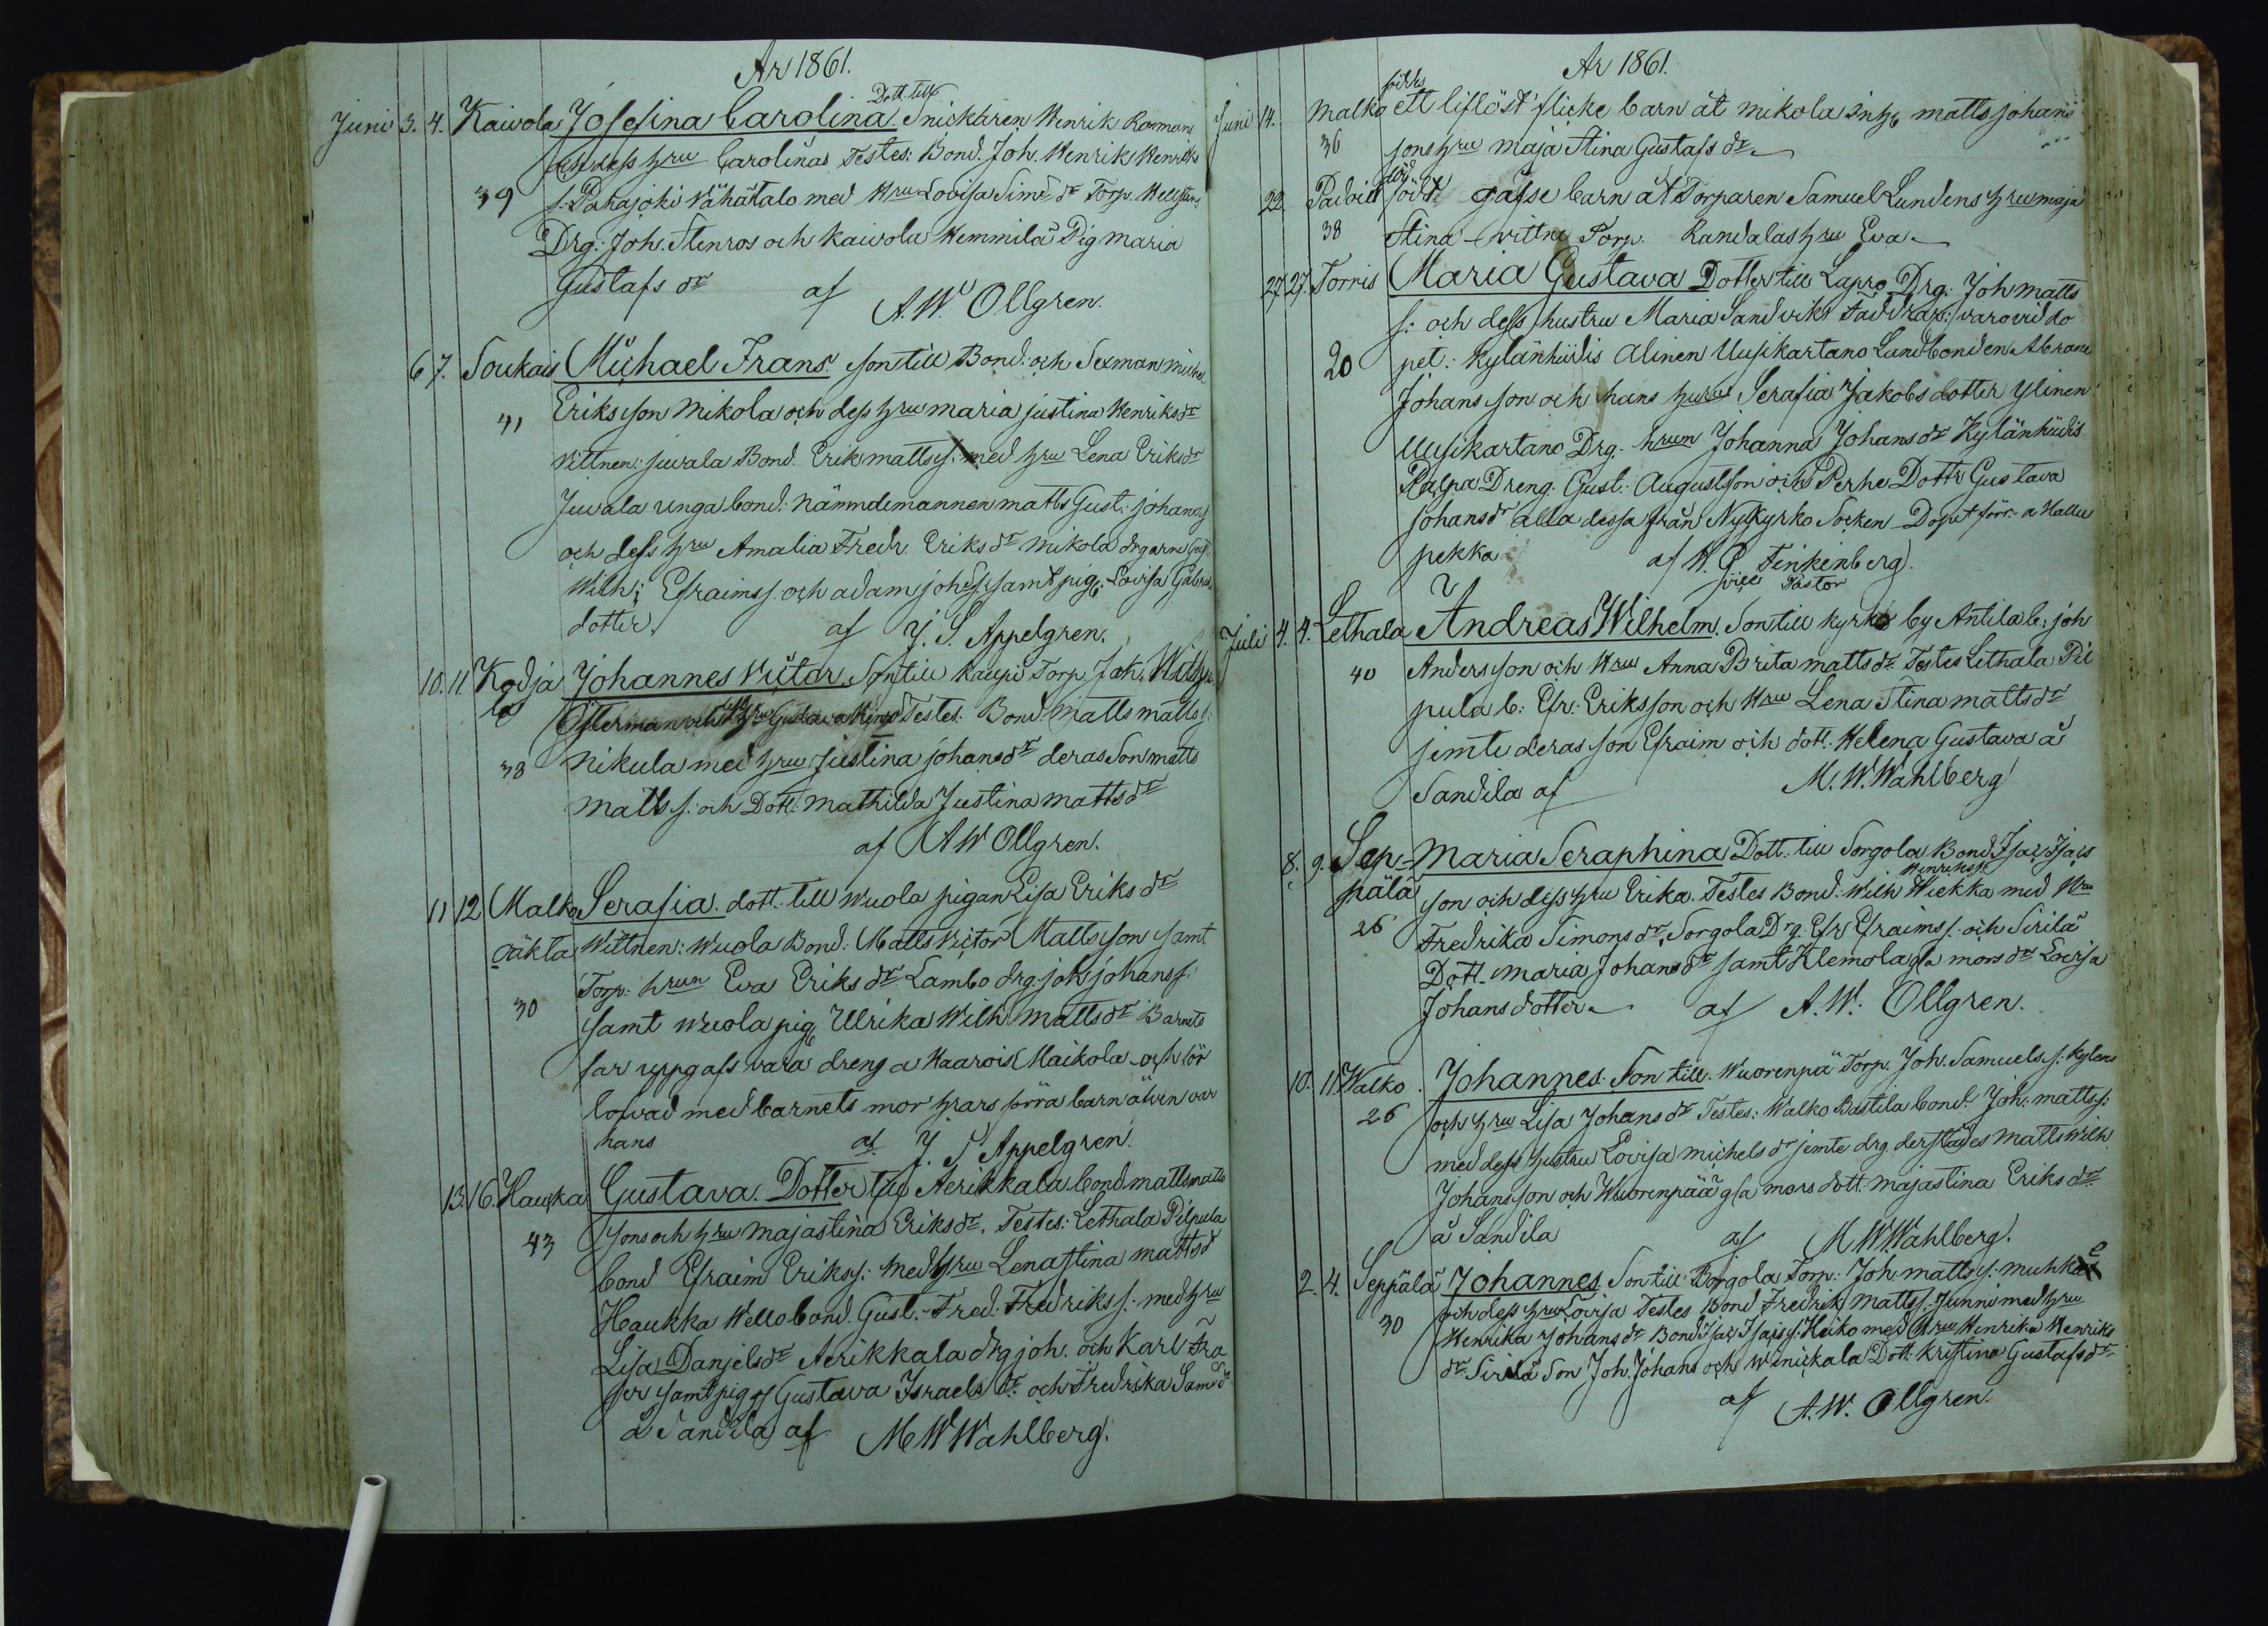 Ar 1861.
Dott. till
Juni 3. 4. Kaivola Josefina Carolina. Snickaren Henrik Roman
och dess hru Carolinas Testes: Bond. Joh. Henrik Henriks
39 s. Pahajoki Vähätalo med Hru Lovisa Sim. dr Torp. Hellsten
Drg: Joh. Stenros och Kaivola Hemmilä Pig Maria
Gustafs dr af A.W. Ollgren.
6 7. Soukais Michael Frans. son till Bond: och Sexman Michel
41 Eriksson Mikola och dess hru Maria Justina Henriks dr
Vittnen: Juvala Bond. Erik Matts s. med hru Lena Eriks dr
Juvala unga bond: Nämndemannen Matts Gust. Johans s
och dess hru Amalia Fredr. Eriks dr Mikola drgarne Gust
Wilh: Efraims s. och Adam Joh. s. samt pig: Lovisa Gabriels
dotter. af J. S. Appelgren.
10. 11. Kodja Johannes Victor. Son till Kaupi Torp. Joh. Wilh
la Österman och Hru Gustava Testes: Bond. Matts Matts s.
38 Nikula med hru Justina Johans dr deras Son Matts
Matts s. och Dott. Mathilda Justina Matts dr
af A W Ollgren.
11 12 Malko Serafia. dott. till Wuola pigan Lisa Eriks dr
oäkta Wittnen: Wuola Bond: Matts Victor Mattsson samt
30 Torp. hrun Eva Eriks dr Lambo drg. joh johans s.
samt Wuola pig Ulrika Wilh. Matts dr Barnets
far uppgafs vara dreng a Haarois Maikola och för
lofvad med barnets mor hvars förra barn äfven var
hans af J. S Appelgren.
13. 16. Hauka Gustava. Dotter till Aerikkala bond matts matts
43 sons och hru majastina Eriks dr. Testes: Lethala Pilpula
bond Efraim Eriks s: med Hru Lenastina matts dr
Haukka Wello bond. Gust. Fred. Fredriks s. med hru
Lisa Danjels dr Aerikkala drg joh. och Karl Fra
ser samt pig Gustava Israels dr. och Fredrika Sam dr
å Sandila af M W Wahlberg.
Ar 1861.
föddes
Juni 14. Malko ett liflöst flicke barn åt mikola matts johans
36 sons hru maja Stina Gustafs dr
död
22. Padvill född gåsse barn åt Torparen Samuel Lundens hru maja
38 Stina vittne Torp. Randalas hru Eva
27 27. Torris Maria Gustava Dotter till Lapro Drg: Joh matts
s. och dess hustru Maria Sandvik Faddrar: varo vid do
20 pet: Kylänhiidis Alinen Uusikartano Landbonden Abram
Johansson och hans huru Serafia Jakobs dotter Ylinen
Uusikartano Drg. hrun Johanna Johans dr Kylänhiidis
Palpa Dreng: Gust. Augustson och Perhe Dottr Gustava
Johans dr alla dessa från Nykyrko Socken Dopet förr. a Hallu
pekka af H. G Finkenberg.
vice Pastor
Juli 4. 4. Lethala Andreas Wilhelm. Son till kyrko by Antila b: joh
40 Andersson och Hru Anna Brita matts dr. Testes Lethala Pil
pula b: Efr. Eriksson och Hru Lena Stina matts dr
jemte deras son Efraim och dott. Helena Gustava å
Sandila af M. W. Wahlberg
8. 9. Sep- Maria Seraphina Dott. till Sorgola Bond Isac Isacs
Henriks s.
pälä son och dess hru Erika. Testes Bond: Wilh Wiekka med Hru
26 Fredrika Simons dr, Sorgola Drg. Efr Efraims s. och Sirilä
Dott. Maria Johans dr samt Klemola gla mors dr Lovisa
Johans dotter af A. W. Ollgren.
10. 11. Walko. Johannes. Son till. Wuorenpä Torp. Joh. Samuels s. Kylens
26 och hru Lisa Johans dr Testes: Walko Bastila bond. Joh: matts s:
med dess hustru Lovisa michels dr jemte drg derstädes Matts Wilh
Johansson och Wuorenpää gla mors dott. majastina Eriks dr
å Sandila af M W Wahlberg.
2. 4. Seppälä Johannes Son till Borgola Torp: Joh. matts s. muhka
30 och dess hru Lovisa Testes Bond Fredrik Matts s. Junni med hru
Henrika Johans dr Bond Isac Isacs s. Heiko med Hru Henrika Henriks
dr. Sirilä Son Joh. Johans och Winickala Dott. Kristina Gustafs dr.
af A. W. Ollgren.